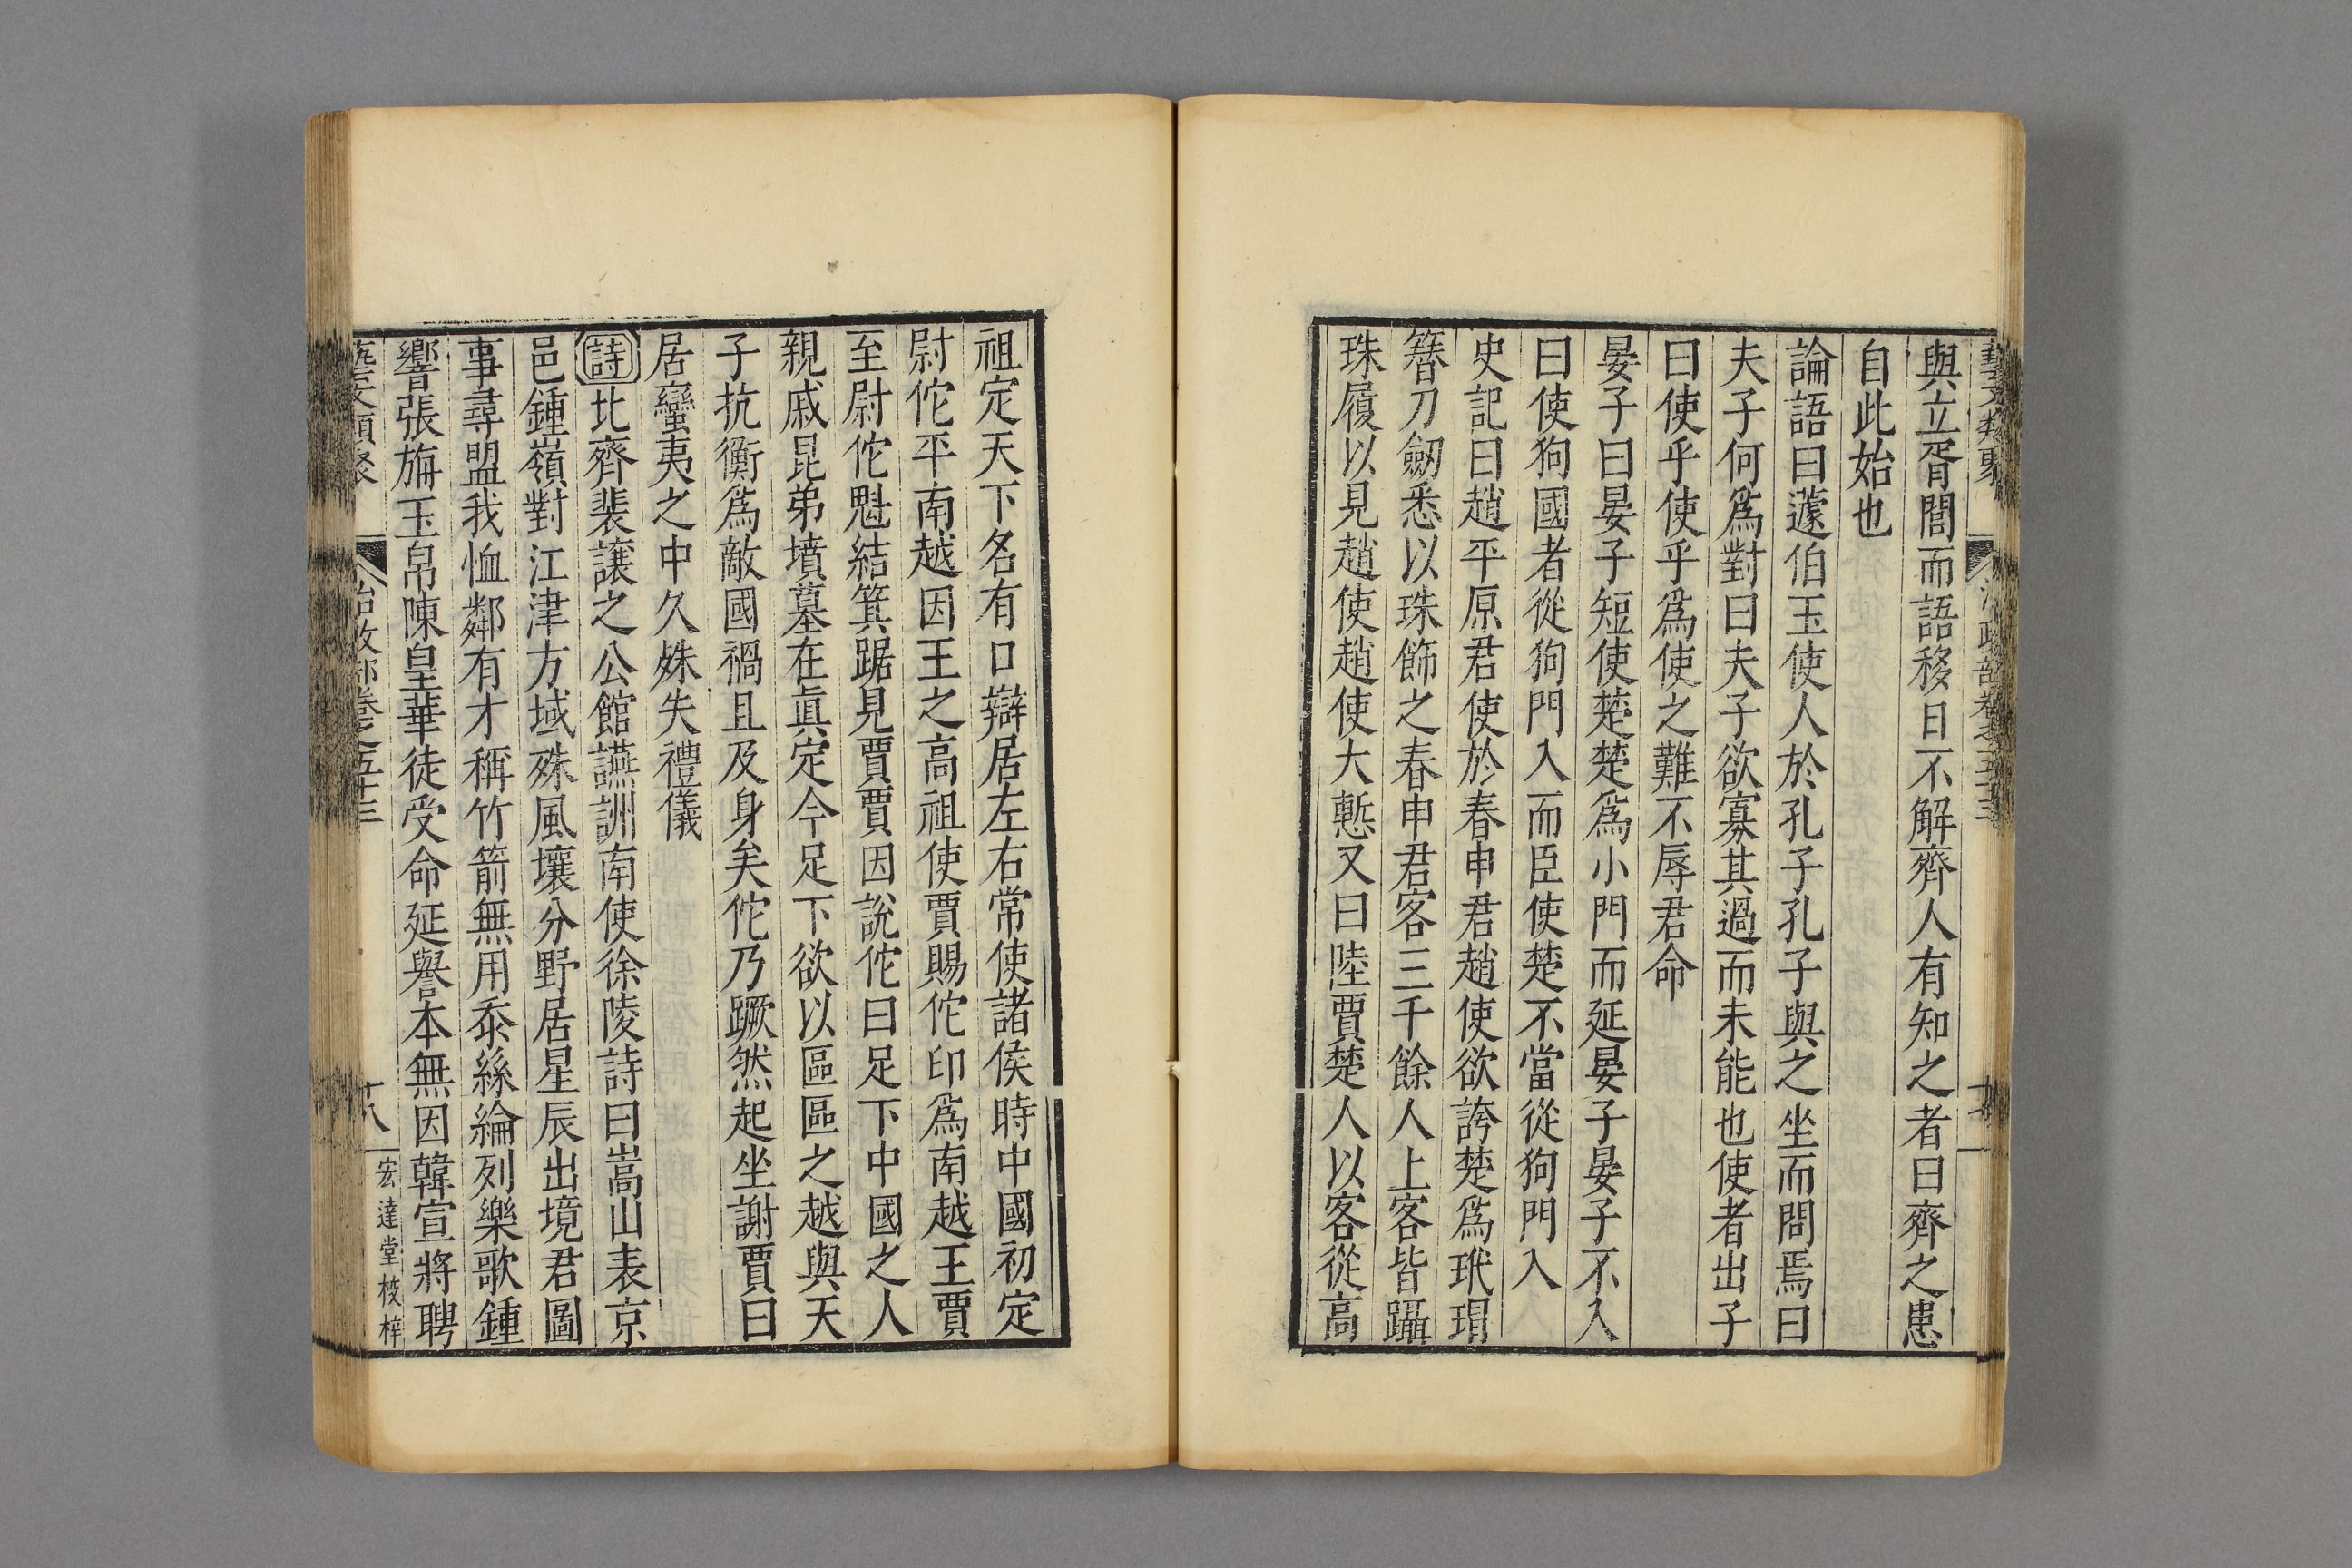 藝文類聚 治政部卷之五十三
與立胥閭而語移日不解齊人有知之者曰齊之患
自此始也
論語曰蘧伯玉使人於孔子孔子與之坐而問焉曰
夫子何爲對曰夫子欲寡其過而未能也使者出子
曰使乎使乎爲使之難不辱君命
晏子曰晏子短使楚楚爲小門而延晏子晏子不入
曰使狗國者從狗門入而臣使楚不當從狗門入
史記曰趙平原君使於春申君趙使欲誇楚爲玳瑁
簪刀劒悉以珠飾之春申君客三千餘人上客皆躡
珠履以見趙使趙使大慙又曰陸賈楚人以客從高
祖定天下名有口辯居左右常使諸侯時中國初定
尉佗平南越因王之高祖使賈賜佗印爲南越王賈
至尉佗魁結箕踞見賈賈因說佗曰足下中國之人
親戚昆弟墳墓在眞定今足下欲以區區之越與天
子抗衡爲敵國禍且及身矣佗乃蹶然起坐謝賈曰
居蠻夷之中久姝失禮儀
詩北齊裴讓之公館讌詶南使徐陵詩曰嵩山表京
邑鍾嶺對江津方域殊風壤分野居星辰出境君圖
事尋盟我恤鄰有才稱竹箭無用忝絲綸列樂歌鍾
響張旃玉帛陳皇華徒受命延譽本無因韓宣將聘
藝文類聚 治政部卷之五十三 十八 宏達堂校梓